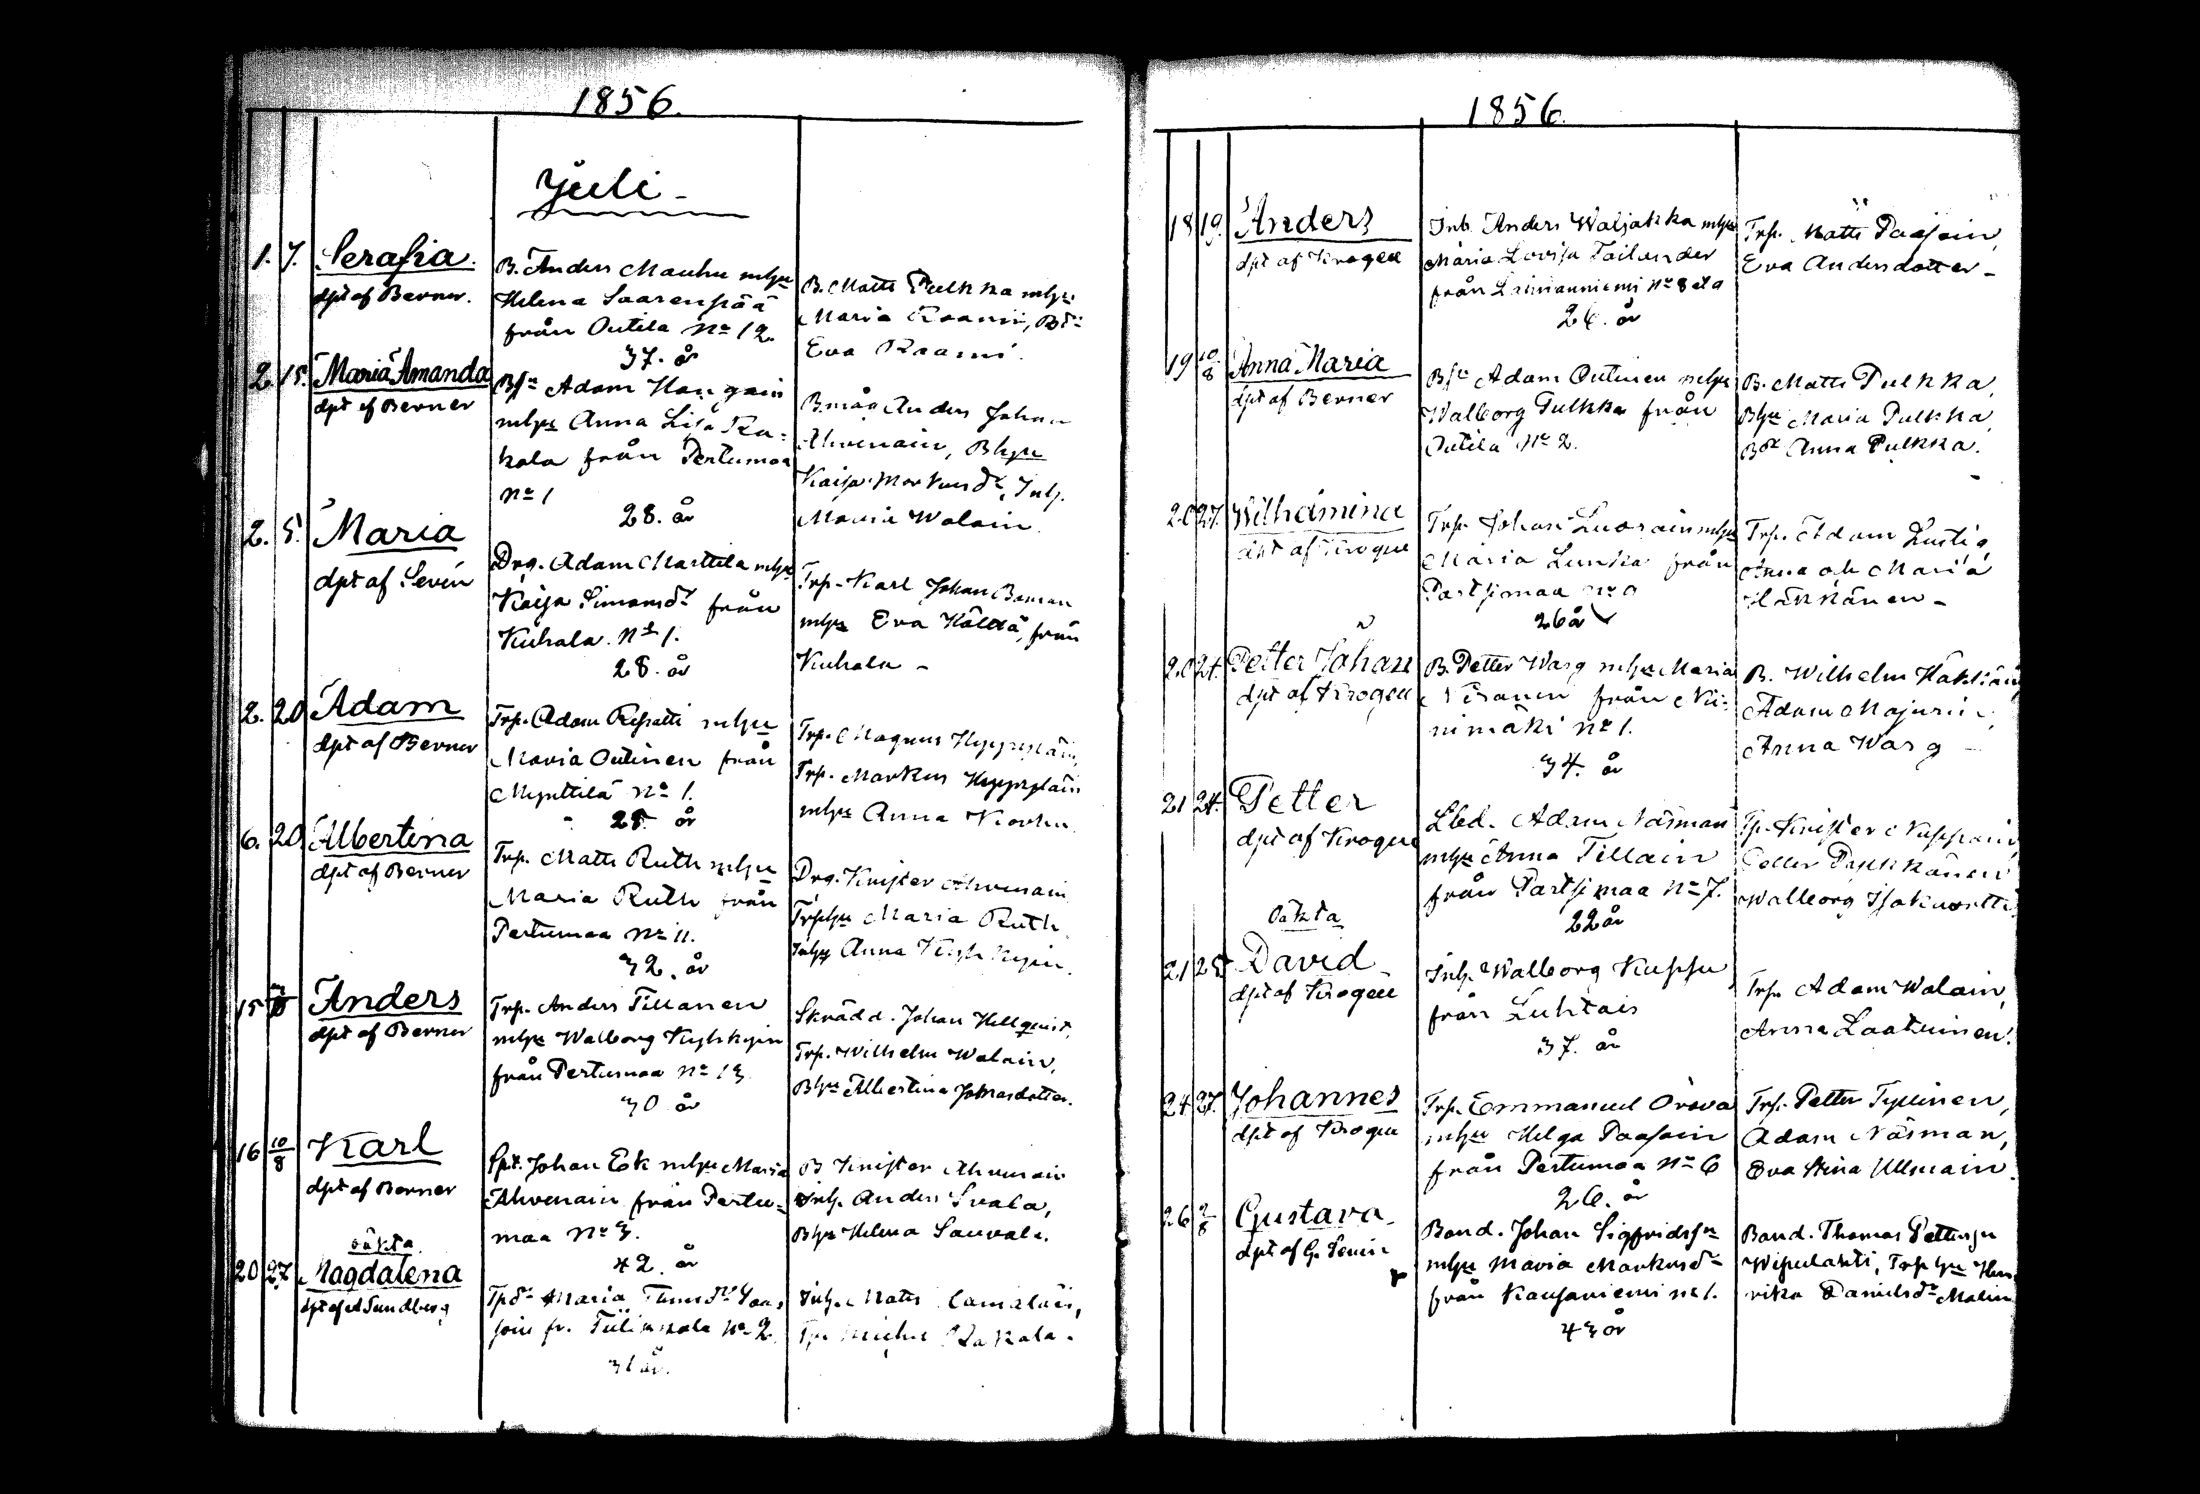 1856.
Juli -
1. 7. Serafia.
dpt af Berner.
B. Anders Mauhu mhu
Helena Saarenpää
från Outila No 12.
37. år
B. Matts Pulkka mhu
Maria Raami, Bdr
Eva Raami.
2. 15. Maria Amanda
dpt af Berner
Bsn Adam Hangain
mhu Anna Lisa Ra-
kala från Pertumaa
No 1
28. år
B.måg Anders Johan
Ahvenain, Bhu
Kaisa Markusdr, Inh.
Maria Walain.
2. 5. Maria
dpt af Sevén
Drg. Adam Marttila mhu
Kaija Simonsdr från
Kuhala No 1.
28. år
Trp. Karl Johan Boman
mhu Eva Hölttä, från
Kuhala -
2. 20 Adam
dpt af Berner
Trp. Adam Repatti mhu
Maria Outinen från
Mynttilä No 1.
28 år
Trp. Magnus Hyyryläin,
Trp. Markus Hyyryläin
mhu Anna Korhu
6. 20 Albertina
dpt af Berner
Trp. Matts Ruth mhu
Maria Ruth från
Pertumaa No 11.
32. år
Drg. Krister Ahvenain
Trphu Maria Ruth,
Inhu Anna
15 Anders
dpt af Berner
Trp. Anders Tillanen
mhu Walborg Kylskyin
från Pertumaa No 13
30 år
Skrädd. Johan Hellquist,
Trp. Wilhelm Walain,
Bhu Albertina Johansdotter.
16 10/8 Karl
dpt af Berner
Spt. Johan Ek mhu Maria
Ahvenain från Pertu-
maa No 3.
42. år
B. Krister Ahvenain
Inh. Anders Svala,
Bhu Helena Sauvala.
oäkta
20 27 Magdalena
dpt af A Sundberg
Tpdr Maria
fr. No 2
31 år.
Inh. Matts
Rakala.
1856.
18 19. Anders
dpt af Krogell
Inh. Anders Waljakka mhu
Maria Lovisa Tailander
från Leimanniemi No 8 et 9
26. år
Trp. Matts Paasoin,
Eva Andersdotter -
19 10/8 Anna Maria
dpt af Berner
Bsn Adam Outinen mhu
Walborg Pulkka från
Outila No 2.
B. Matts Pulkka,
Bhu Maria Pulkka,
Bdr Anna Pulkka.
20 27. Wilhelmina
dpt af Krogell
Trp. Johan Luosain mhu
Maria Lunka från
Partsimaa No 9
26 år
Trp. Adam Lustig
Anna och Maria
Häkkänen -
20 24. Petter Johan
dpt af Krogell
B. Petter Warg mhu Maria
Nisonen från Nii-
nimäki No 1.
34. år
B. Wilhelm Häkkän
Adam Majuri,
Anna Warg -
21 24. Petter
dpt af Krogell
Lbd. Adam Näsman
mhu Anna Tillain
från Partsimaa No 7.
22 år
Tp. Krister Nuppoin,
Petter Pylkkänen
Walborg Isakusetti
oäkta
21 25 David
dpt af Krogell
Inh. Walborg Kuppu
från Luhtais
37. år
Trp. Adam Walain,
Anna Laatuinen.
24 27. Johannes
dpt af Krogell
Trp. Emmanuel Orava
mhu Helga Paasoin
från Pertumaa No 6
26. år
Trp. Petter Tyllinen,
Adam Näsman,
Eva Stina Ullmain.
26 2/8 Gustava
dpt af G. Sevén
Bond. Johan Sigfridssn
mhu Maria Markusdr
från Kaujaniemi No 1.
43 år
Bond. Thomas Petterssn
Wipulahti, Trp hu Hen-
rika Danielsdr Malin